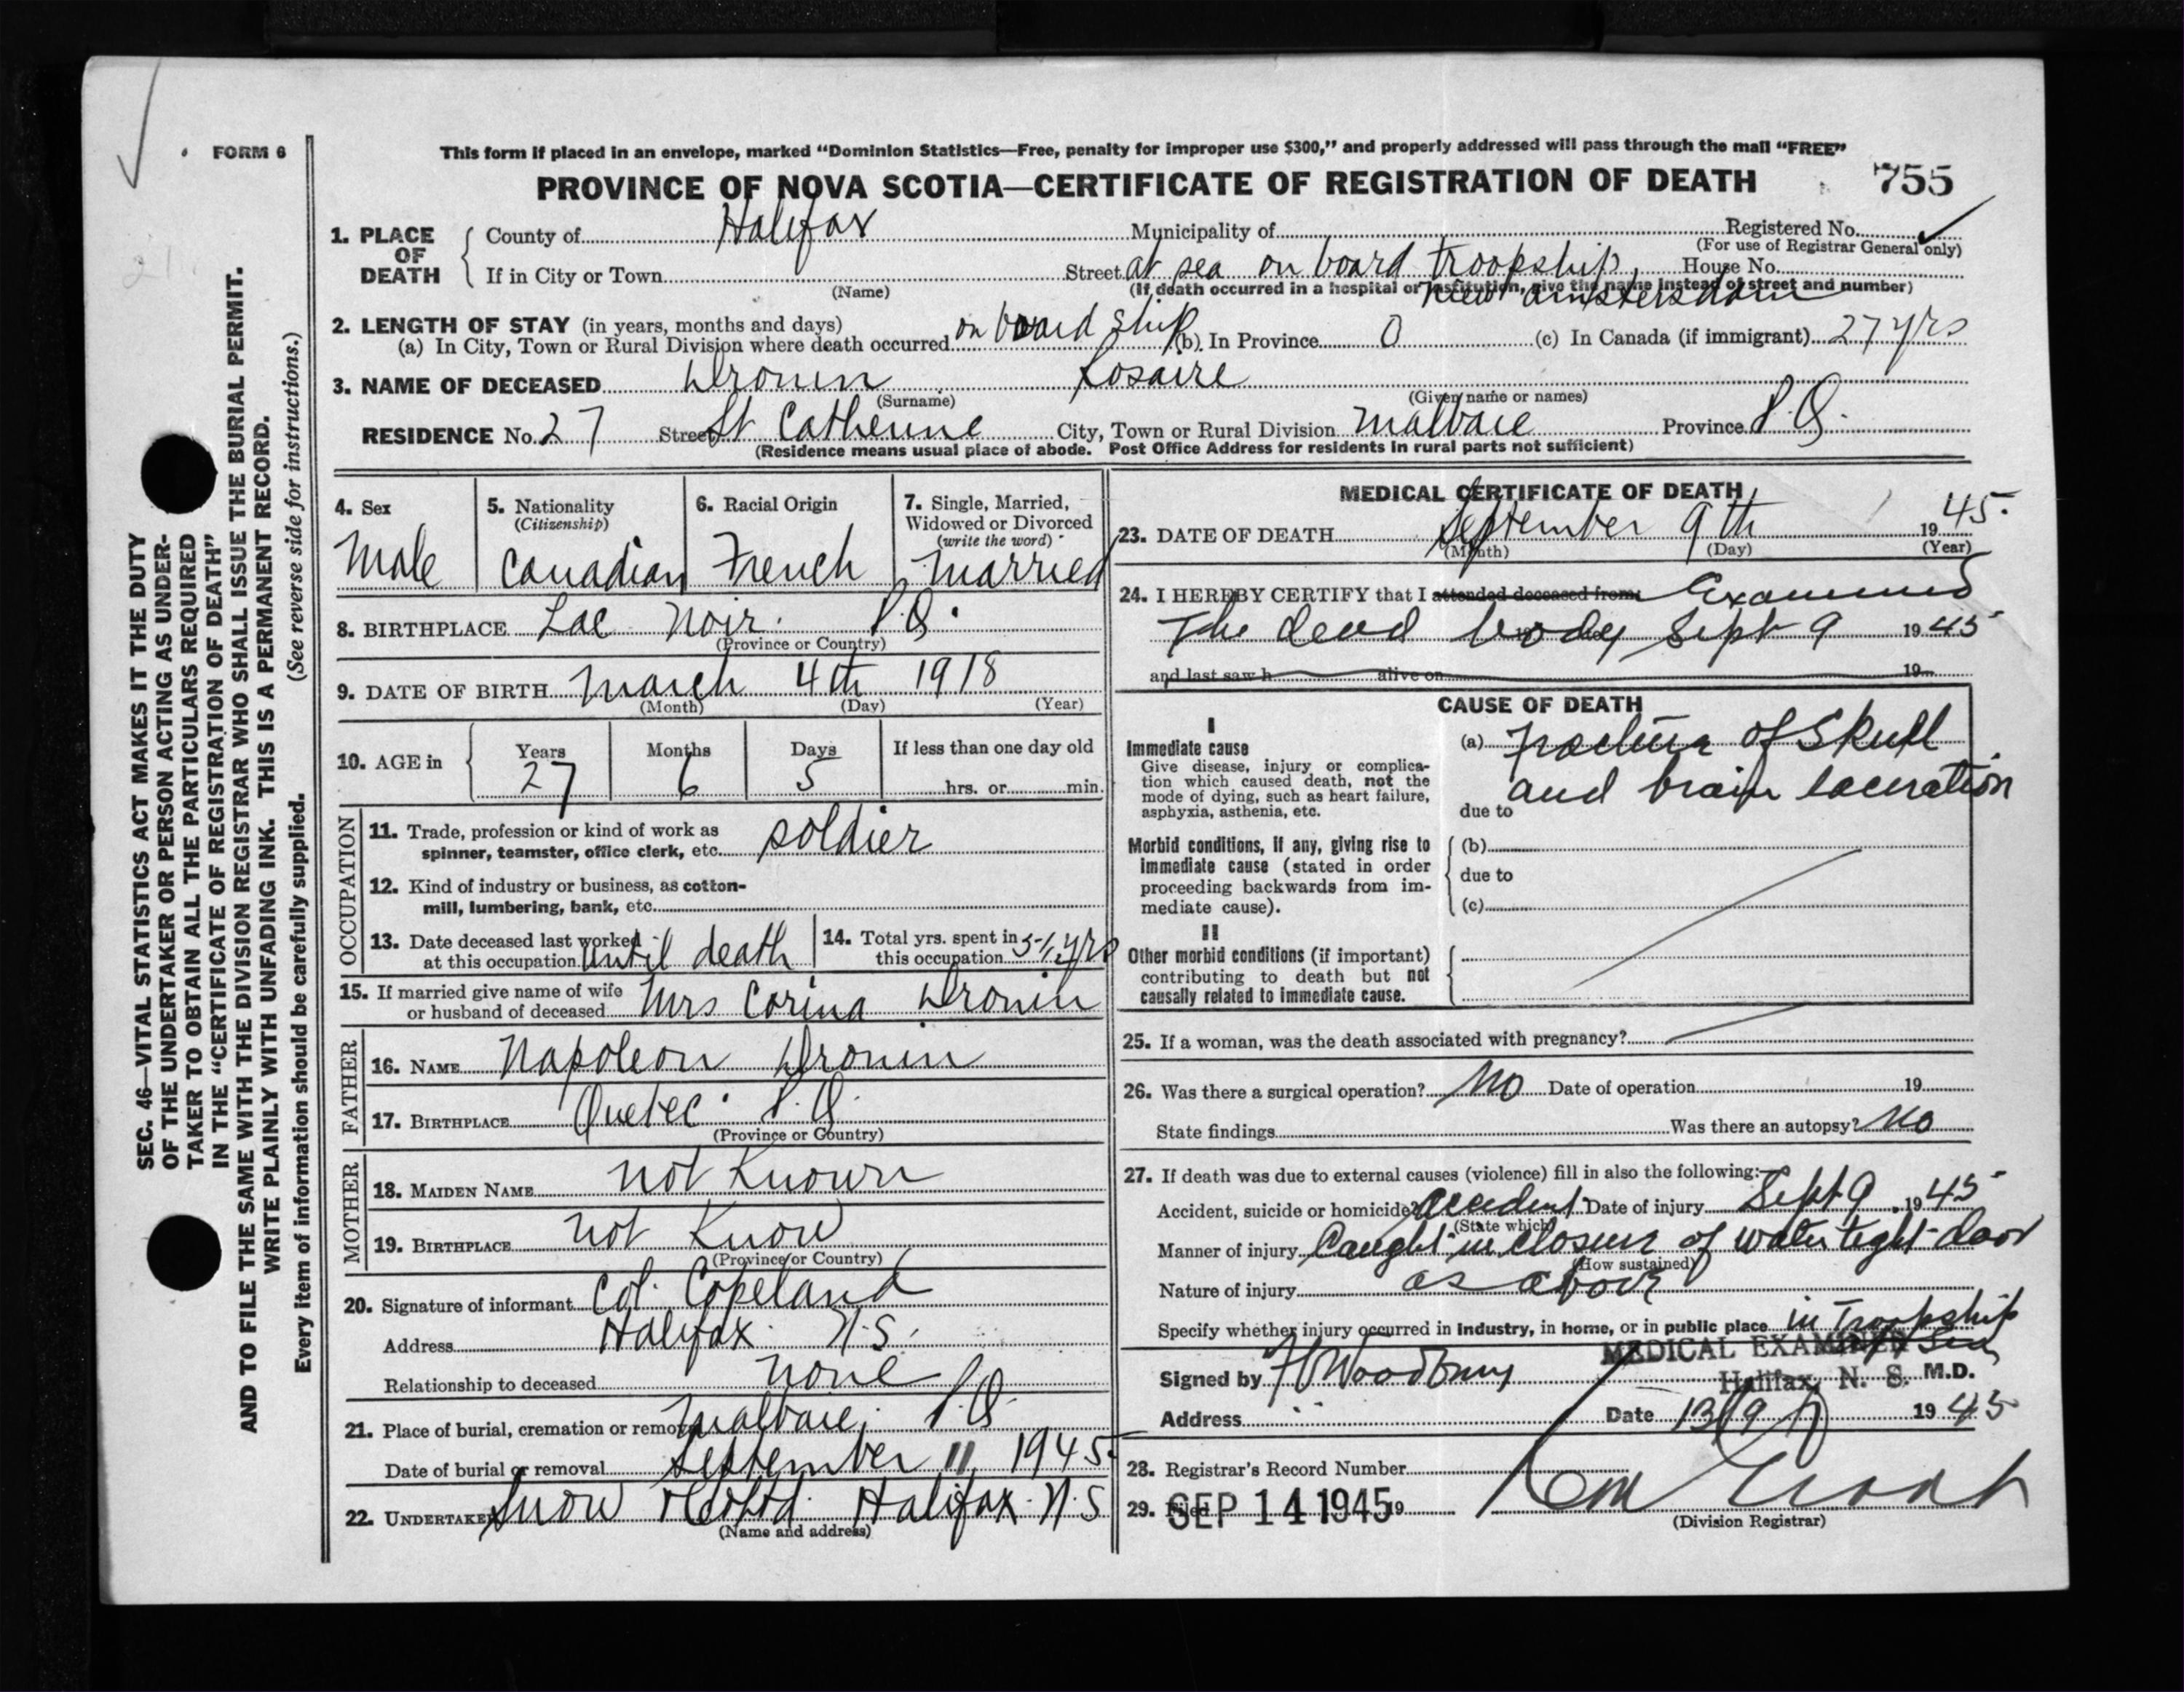 FORM 6
This form if placed in an envelope, marked “Dominion Statistics—Free, penalty for improper use $300,” and properly addressed will pass through the mail “FREE”
PROVINCE OF NOVA SCOTIA—CERTIFICATE OF REGISTRATION OF DEATH 755
SEC. 46—VITAL STATISTICS ACT MAKES IT THE DUTY
OF THE UNDERTAKER OR PERSON ACTING AS UNDER-
TAKER TO OBTAIN ALL THE PARTICULARS REQUIRED
IN THE “CERTIFICATE OF REGISTRATION OF DEATH”
AND TO FILE THE SAME WITH THE DIVISION REGISTRAR WHO SHALL ISSUE THE BURIAL PERMIT.
WRITE PLAINLY WITH UNFADING INK. THIS IS A PERMANENT RECORD.
Every item of information should be carefully supplied. (See reverse side for instructions.)
1. PLACE OF DEATH County of Halifax Municipality of Registered No.
(For use of Registrar General only)
If in City or Town Street at sea on board troopship, House No.
(Name) (If death occurred in a hospital or institution, give the name instead of street and number)
New Amsterdam
2. LENGTH OF STAY (in years, months and days)
(a) In City, Town or Rural Division where death occurred on board ship (b) In Province 0 (c) In Canada (if immigrant) 27 yrs
3. NAME OF DECEASED Drouin Rosaire
(Surname) (Given name or names)
RESIDENCE No. 27 Street St Catherine City, Town or Rural Division Malbaie Province P.Q.
(Residence means usual place of abode. Post Office Address for residents in rural parts not sufficient)
4. Sex Male
5. Nationality (Citizenship) Canadian
6. Racial Origin French
7. Single, Married, Widowed or Divorced (write the word) Married
8. BIRTHPLACE Lac Noir. P.Q.
(Province or Country)
9. DATE OF BIRTH March 4th 1918
(Month) (Day) (Year)
10. AGE in Years 27 Months 6 Days 5 If less than one day old
hrs. or min.
OCCUPATION
11. Trade, profession or kind of work as
spinner, teamster, office clerk, etc. soldier
12. Kind of industry or business, as cotton-
mill, lumbering, bank, etc.
13. Date deceased last worked
at this occupation until death
14. Total yrs. spent in
this occupation 5 1/2 yrs
15. If married give name of wife
or husband of deceased Mrs Corina Drouin
FATHER
16. NAME Napoleon Drouin
17. BIRTHPLACE Quebec P.Q.
(Province or Country)
MOTHER
18. MAIDEN NAME not Known
19. BIRTHPLACE not Know
(Province or Country)
20. Signature of informant Col. Copeland
Address Halifax N.S.
Relationship to deceased none
21. Place of burial, cremation or removal Malbaie, P.Q.
Date of burial or removal September 11 1945
22. UNDERTAKER Snow & Co Ltd. Halifax N.S
(Name and address)
MEDICAL CERTIFICATE OF DEATH
23. DATE OF DEATH September 9th 1945.
(Month) (Day) (Year)
24. I HEREBY CERTIFY that I attended deceased from Examined
The dead body Sept 9 1945
and last saw h alive on 19
CAUSE OF DEATH
I
Immediate cause
Give disease, injury or complica-
tion which caused death, not the
mode of dying, such as heart failure,
asphyxia, asthenia, etc.
(a) Fracture of Skull
and brain laceration
due to
Morbid conditions, if any, giving rise to
immediate cause (stated in order
proceeding backwards from im-
mediate cause).
(b)
due to
(c)
II
Other morbid conditions (if important)
contributing to death but not
causally related to immediate cause.
25. If a woman, was the death associated with pregnancy?
26. Was there a surgical operation? No Date of operation 19
State findings Was there an autopsy? No
27. If death was due to external causes (violence) fill in also the following:—
Accident, suicide or homicide? Accident Date of injury Sept 9 1945
(State which)
Manner of injury Caught in closure of water tight door
(How sustained)
Nature of injury as above
Specify whether injury occurred in industry, in home, or in public place in Troopship
at Sea
MEDICAL EXAMINER
Signed by Woodbury Halifax, N. S. M.D.
Address Date 13/9 1945
28. Registrar's Record Number
29. Filed SEP 14 1945 19
(Division Registrar)